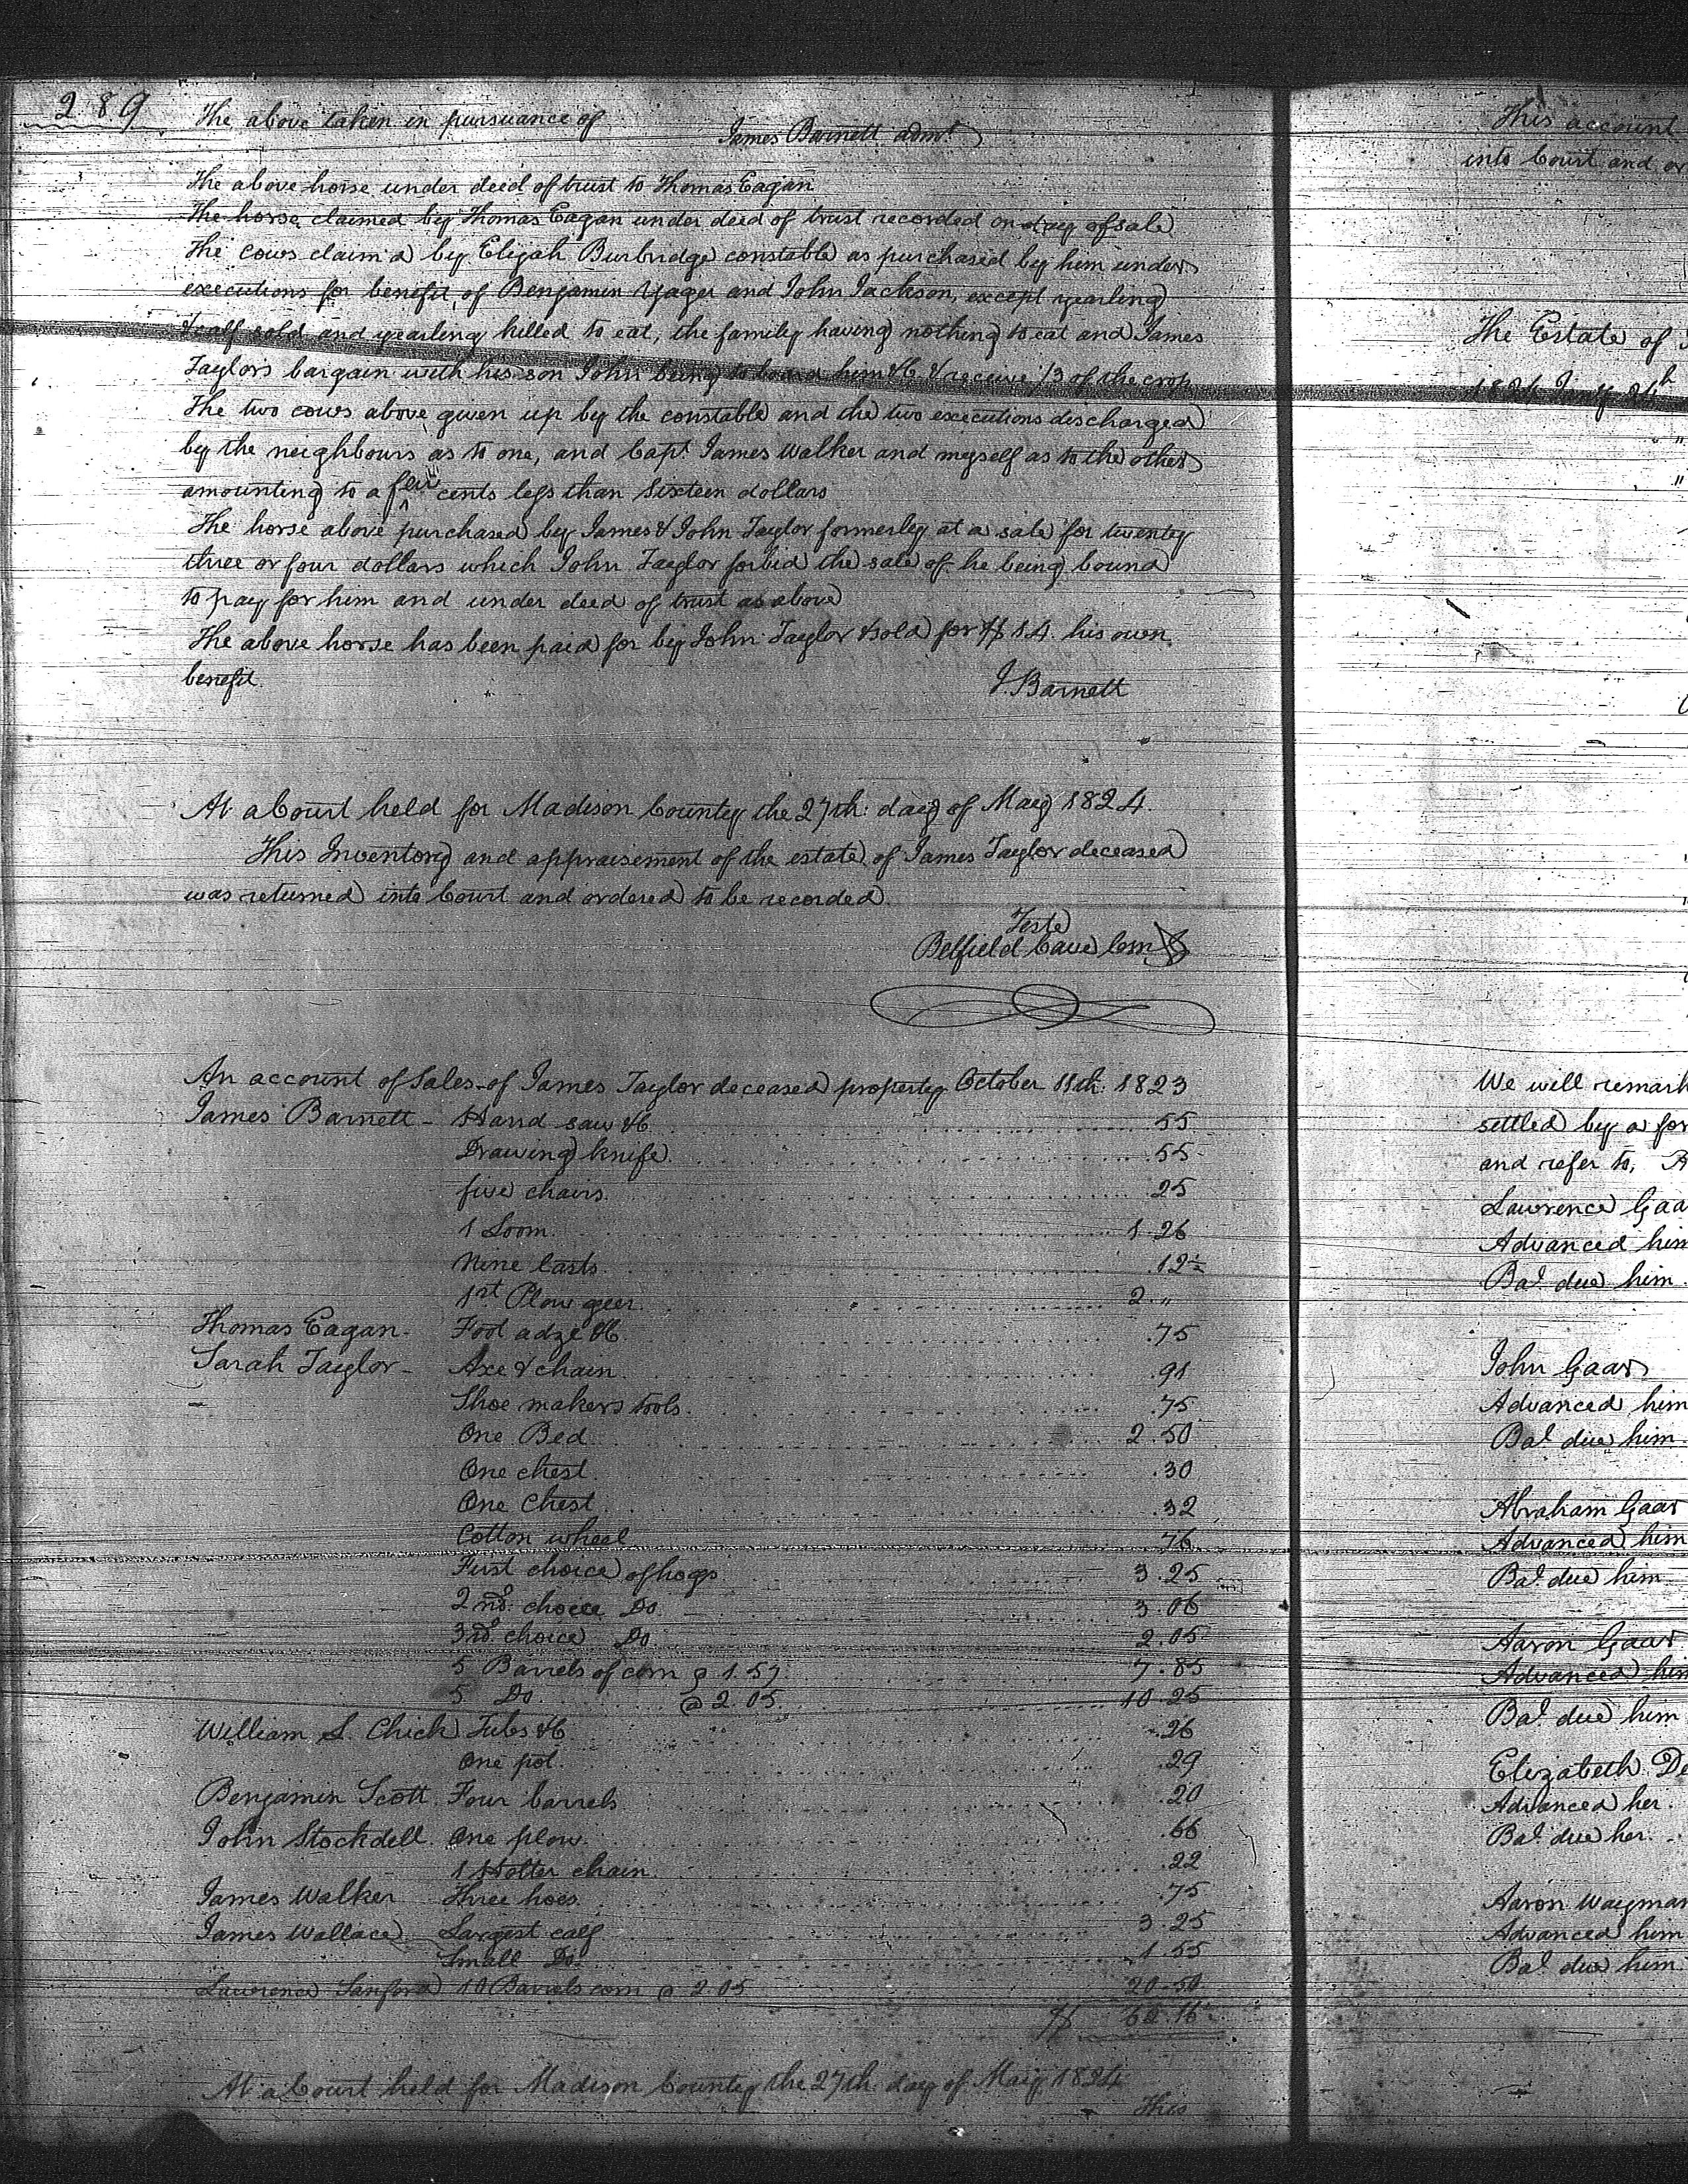 289
The above taken in pursuance of
James Barnett admr.
The above horse under deed of trust to Thomas Eagan
The horse claimed by Thomas Eagan under deed of trust recorded on day of sale
The cows claim'd by Elijah Burbridge constable as purchased by him under
executions for benefit of Benjamin Yager and John Jackson, except yearling
& calf sold and yearling killed to eat, the family having nothing to eat and James
Taylors bargain with his son John being to board him &c & receive 1/3 of the crop
The two cows above given up by the constable and the two executions discharged
by the neighbours as to one, and Capt. James Walker and myself as to the other
amounting to a few cents less than Sixteen dollars
The horse above purchased by James & John Taylor formerly at a sale for twenty
three or four dollars which John Taylor forbid the sale of he being bound
to pay for him and under deed of trust as above
The above horse has been paid for by John Taylor & sold for $14. his own
benefit.
J. Barnett
At a Court held for Madison County the 27th. day of May 1824.
This Inventory and appraisement of the estate of James Taylor deceased
was returned into Court and ordered to be recorded.
Teste
Belfield Cave
An account of Sales of James Taylor deceased property October 11th. 1823
James Barnett - Hand saw &c 55
Drawing knife .55
five chairs 25
1 Loom 1.26
Nine lasts .12½
1st Plow geer 2 "
Thomas Eagan - Foot adze &c .75
Sarah Taylor - Axe & chain .91
Shoe makers tools .75
One Bed 2.50
One chest .30
One Chest .32
Cotton wheel 76
First choice of hogs 3.25
2nd. choice Do. 3.06
3rd. choice Do 2.05
5 Barrels of corn @ 1.57 7.85
5 Do. @ 2.05 10.25
William S. Chick Tubs &c .26
One pot .29
Benjamin Scott. Four barrels .20
John Stockdell. One plow .66
1 Halter chain .22
James Walker Three hoes .75
James Wallace Largest calf 3.25
Small Do. 1.55
Lawrence Sanford 10 Barrels corn @ 2.05 20.50
$
At a Court held for Madison County the 27th. day of May 1824
This
This account
into Court and or
The Estate of
We will remark
settled by a for
and refer to.
Lawrence Gaa
Advanced him
Bal. due him.
John Gaar
Advanced him
Bal. due him.
Abraham Gaar
Advanced him
Bal. due him
Aaron Gaar
Advanced him
Bal. due him
Elizabeth De
Advanced her.
Bal. due her.
Aaron Wayman
Advanced him
Bal. due him.